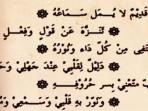 قَدِيْمٌ لَا يُمَلُّ سَمَاعُهُ
تَنَزَّهَ عَنْ قَوْلٍ وَفِعْلٍ
مِنْ كُلِّ دَاءٍ وَنُوْرُهُ
دَلِيْلٌ لِقَلْبِيْ عِنْدَ جَهْلِيْ
مَتِّعْنِيْ بِسِرِّ حُرُوْفِهِ
وَنَوِّرْ بِهِ قَلْبِيْ وَسَمْعِيْ